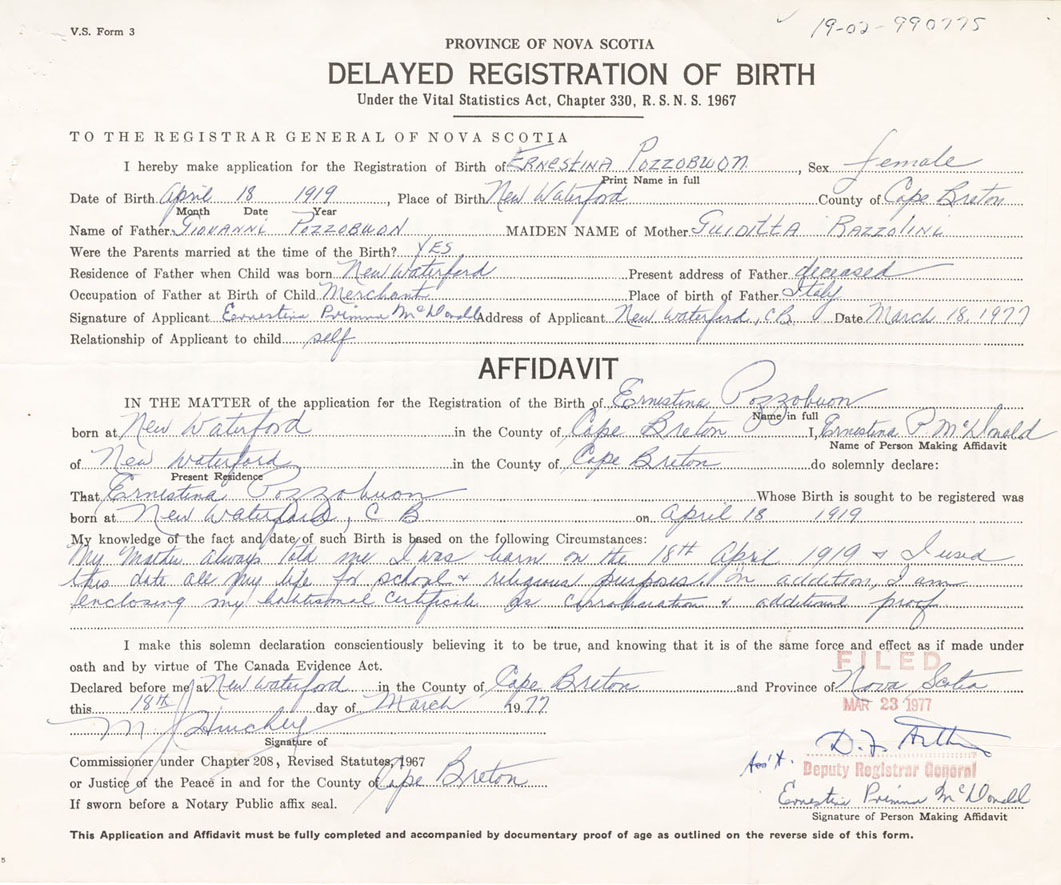 V.S. Form 3
19-02-990775
PROVINCE OF NOVA SCOTIA
DELAYED REGISTRATION OF BIRTH
Under the Vital Statistics Act, Chapter 330, R.S.N.S. 1967
TO THE REGISTRAR GENERAL OF NOVA SCOTIA
I hereby make application for the Registration of Birth of ERNESTINA POZZOBUON, Sex female
Print Name in full
Date of Birth April 18 1919, Place of Birth New Waterford County of Cape Breton
Month Date Year
Name of Father GIOVANNI POZZOBUON MAIDEN NAME of Mother GUIDITTA RAZZOLINI
Were the Parents married at the time of the Birth? YES
Residence of Father when Child was born New Waterford Present address of Father deceased
Occupation of Father at Birth of Child Merchant Place of birth of Father Italy
Signature of Applicant Ernestina Primma McDonald Address of Applicant New Waterford, CB Date March 18, 1977
Relationship of Applicant to child self
AFFIDAVIT
IN THE MATTER of the application for the Registration of the Birth of Ernestina Pozzobuon
Name in full
born at New Waterford in the County of Cape Breton I, Ernestina P McDonald
Name of Person Making Affidavit
of New Waterford in the County of Cape Breton do solemnly declare:
Present Residence
That Ernestina Pozzobuon Whose Birth is sought to be registered was
born at New Waterford, C B on April 18 1919
My knowledge of the fact and date of such Birth is based on the following Circumstances:
My Mother always told me I was born on the 18th April 1919 & I used
this date all my life for school & religious purposes. In addition, I am
enclosing my babtismal certificate as corroboration & additional proof
I make this solemn declaration conscientiously believing it to be true, and knowing that it is of the same force and effect as if made under
oath and by virtue of The Canada Evidence Act.
FILED
Declared before me at New Waterford in the County of Cape Breton and Province of Nova Scotia
this 18th day of March 1977
MAR 23 1977
M J Hinchey
Signature of
Commissioner under Chapter 208, Revised Statutes, 1967
Ass't. Deputy Registrar General
or Justice of the Peace in and for the County of Cape Breton
Ernestina Primma McDonald
If sworn before a Notary Public affix seal.
Signature of Person Making Affidavit
This Application and Affidavit must be fully completed and accompanied by documentary proof of age as outlined on the reverse side of this form.
5